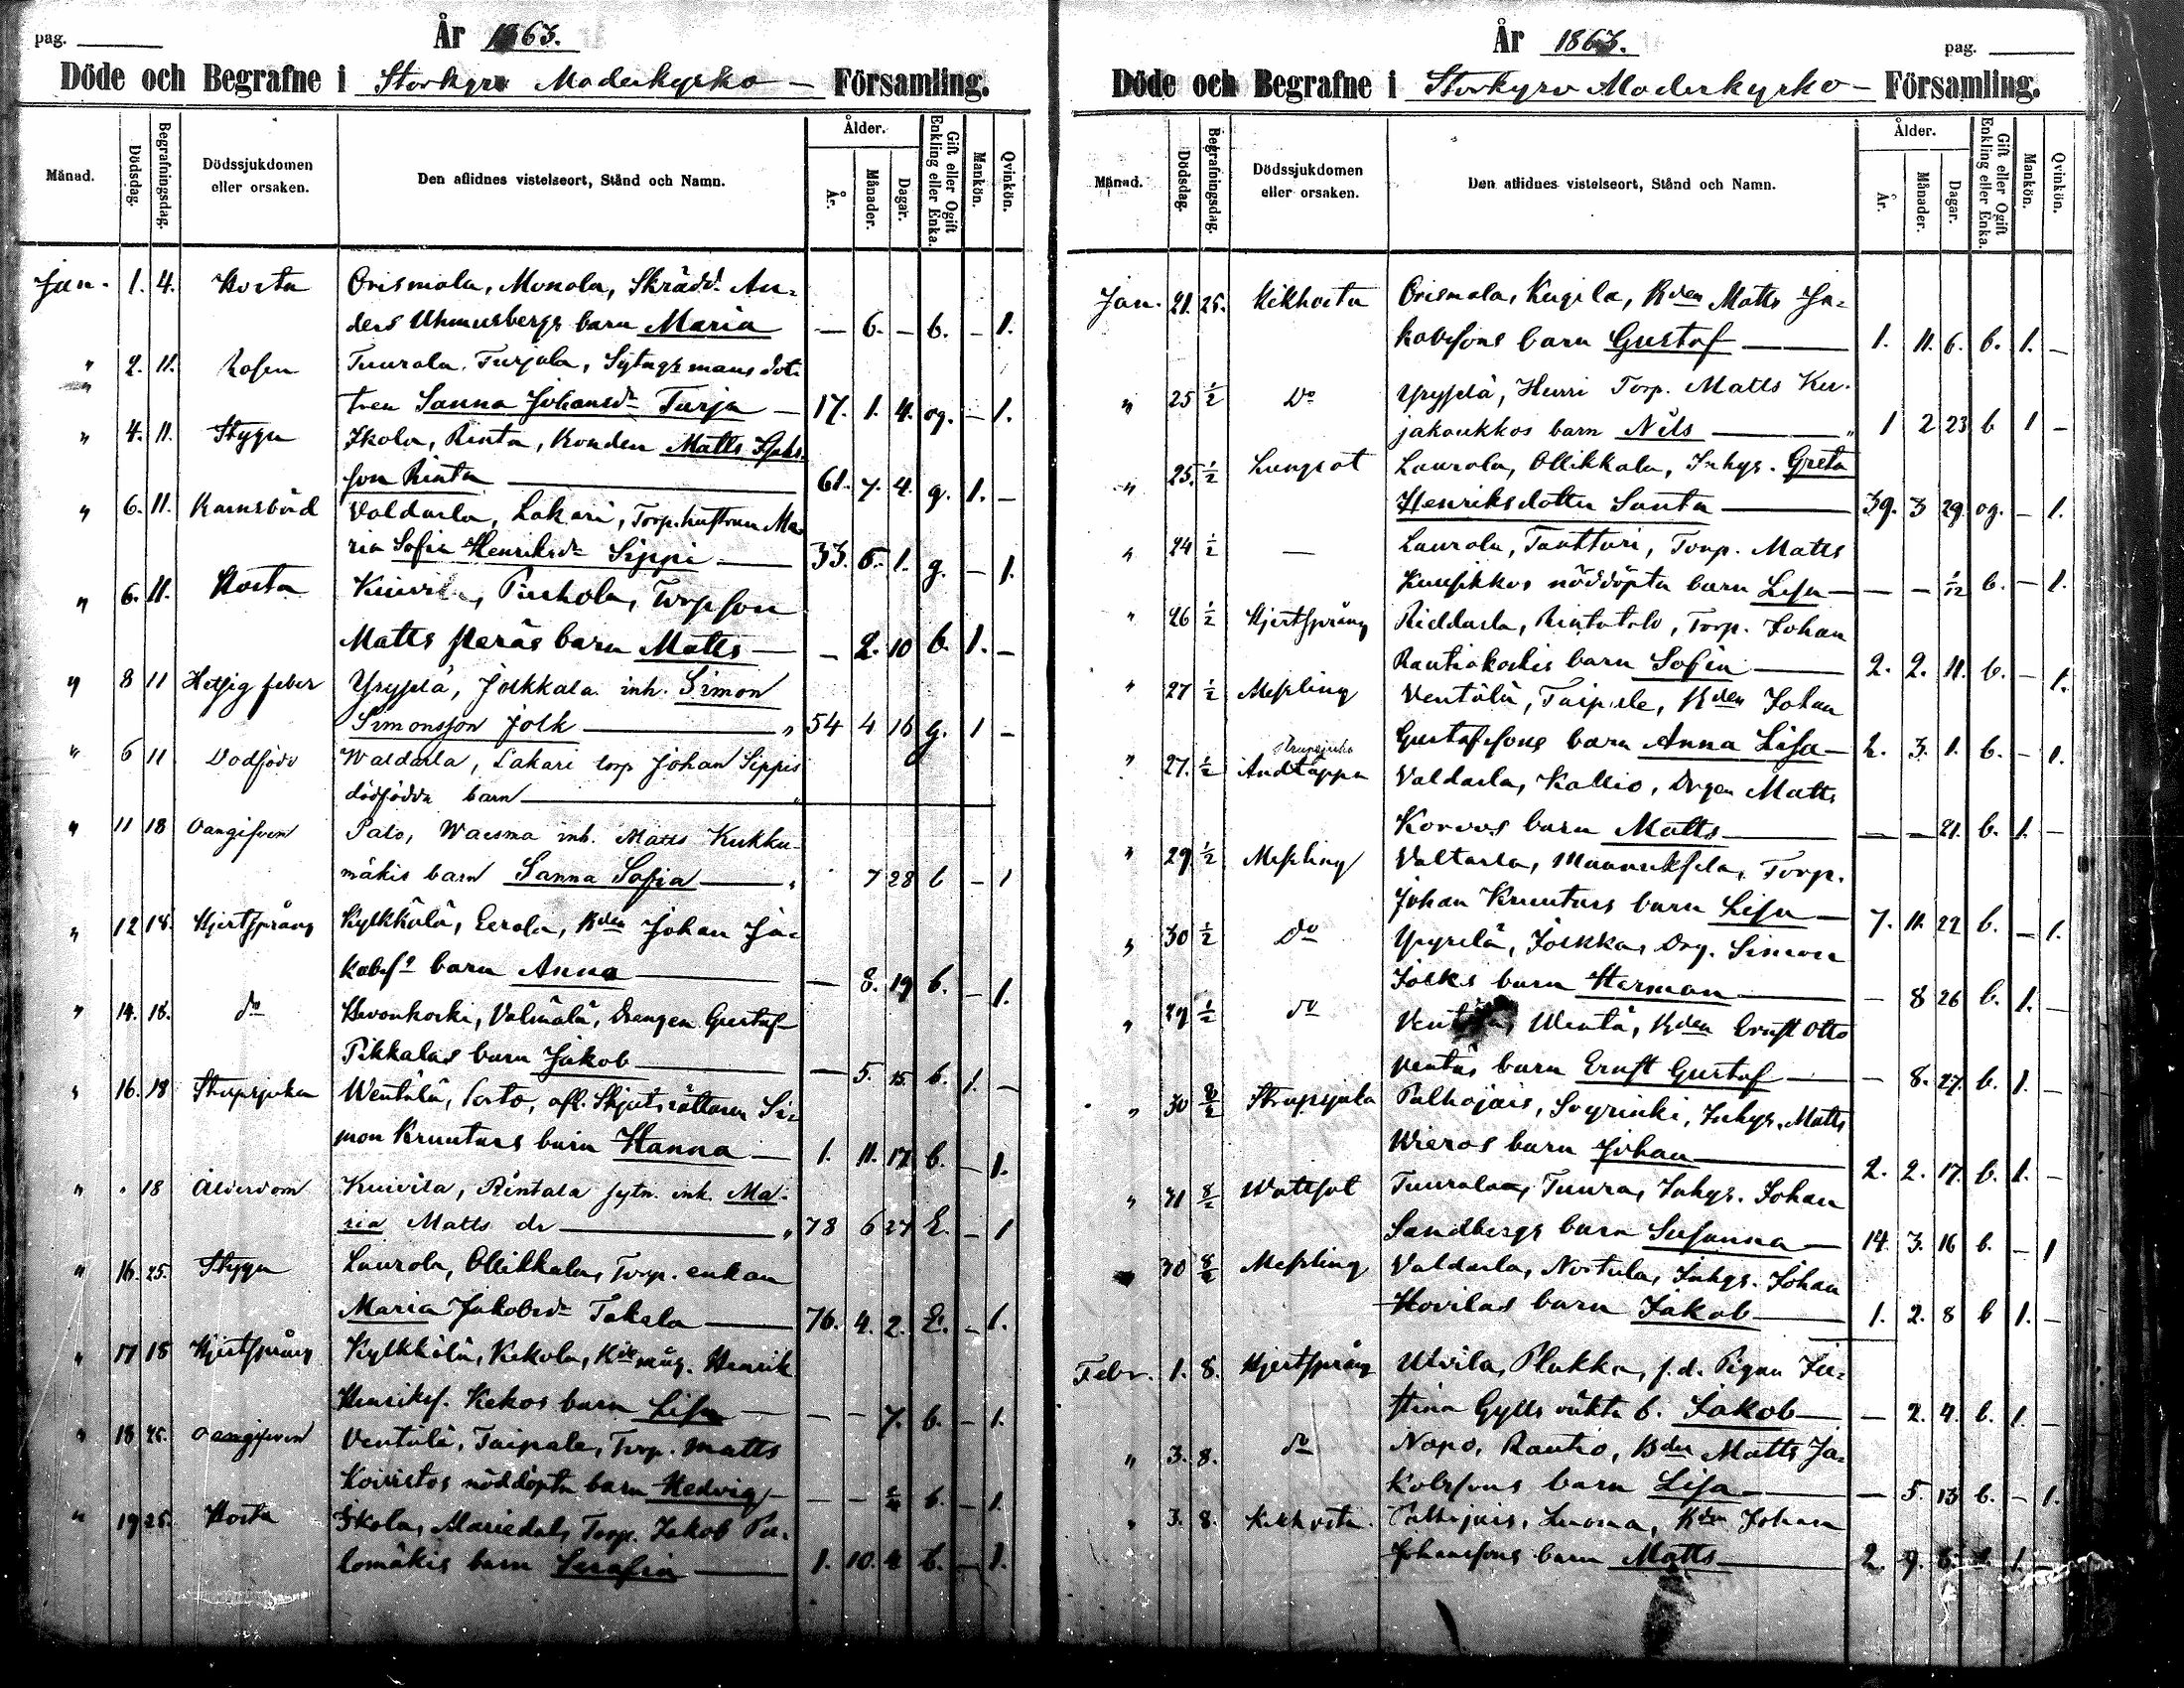 pag.
År 1863.
Döde och Begrafne i Storkyro Moderkyrko - Församling.
Månad. Dödsdag. Begrafningsdag. Dödssjukdomen eller orsaken. Den aflidnes vistelseort, Stånd och Namn. Ålder. År. Månader. Dagar. Gift eller Ogift Enkling eller Enka. Mankön. Qvinkön.
Jan. 1. 4. Hosta Orismala, Monola, Skrädd. An-
ders Uhmusbergs barn Maria — 6. — b. — 1.
" 2. 11. Rosen Tuurala, Turjala, Sytngsmans dot-
tren Sanna Johansdr Turja — 17. 1. 4. og. — 1.
" 4. 11. Stygn Ikola, Rinta, Bonden Matts
son Rinta 61. 7. 4. g. 1. —
" 6. 11. Barnsbörd Valdarla, Lakari, Torp.hustrun Ma-
ria Sofia Henriksdr Sippi 33. 5. 1. g. — 1.
" 6. 11. Hosta Kuivila, Pirhola, Torpson
Matts Peräs barn Matts — 2. 10 b. 1. —
" 8 11 Hetsig feber Yryselä, Jolkkala inh. Simon
Simonsson Jolk " 54 4 16 g. 1 —
" 6 11 Dödfödd Waldarla, Lakari torp Johan Sippis
dödfödda barn "
" 11 18 Oangifven Palo, Waisma inh. Matts Kukku-
mäkis barn Sanna Sofia 7 28 b — 1
" 12 18. Hjertsprång Kylkkälä, Eerola, Bden Johan Ja-
kobss barn Anna — 8. 19 b. — 1.
" 14. 18. do Hevonkoski, Välimälä, Drengen Gustaf
Pikkalas barn Jakob — 5. 15. b. 1. —
" 16. 18 Strupsjukan Wentälä, afl. Skjutsrättaren Si-
mon Kruuturs barn Hanna — 1. 11. 17. b. — 1.
" " 18 Ålderdom Kuivila, Rintala sytn. inh. Ma-
ria Matts dr " 78 6 27 E. — 1
" 16. 25. Stygn Laurola, Ollikkala, Torp. enkan
Maria Jakobsdr Takala 76. 4. 2. E. — 1.
" 17 18 Hjertsprång Kylkkälä, Kekola, Bde måg. Henrik
Henrikss. Kekos barn Lisa — — 7. b. — 1.
" 18 25. Oangifven Ventälä, Taipale, Torp. Matts
Koivistos nöddöpta barn Hedvig — — b. — 1.
" 19 25. Hosta Ikola, Mariedal, Torp. Jakob Pa-
lomäkis barn Serafia 1. 10. 4 b. — 1.
År 1863. pag.
Döde och Begrafne i Storkyro Moderkyrko - Församling.
Månad. Dödsdag. Begrafningsdag. Dödssjukdomen eller orsaken. Den aflidnes vistelseort, Stånd och Namn. Ålder. År. Månader. Dagar. Gift eller Ogift Enkling eller Enka. Mankön. Qvinkön.
Jan. 21. 25. Kikhosta Orismala, Kugila, Bden Matts Ja-
kobssons barn Gustaf 1. 11. 6. b. 1. —
" 25 1/2 Do Yryselä, Hurri Torp. Matts Ku-
jakoukkos barn Nils " 1 2 23 b 1 —
" 25. 1/2 Lungsot Laurola, Ollikkala, Inhys. Greta
Henriksdotter Santa 39. 3 29. og. — 1.
" 24 1/2 — Laurola, Tanttari, Torp. Matts
Kuusikkos nöddöpta barn Lisa — — — 1/12 b. — 1.
" 26 1/2 Hjertsprång Riddarla, Rintatalo, Torp. Johan
Rautiakoskis barn Sofia 2. 2. 11. b. — 1.
" 27 1/2 Messling Ventälä, Taipale, Bden Johan
Gustafssons barn Anna Lisa — 2. 3. 1. b. — 1.
" 27. 1/2 strupsjuka Andtäppa Valdarla, Kallio, Drgen Matts
Korvos barn Matts — — 21. b. 1. —
" 29 1/2 Messling Valtarla, Mannuksela, Torp.
Johan Kruuturs barn Lisa — 7. 11. 22 b. — 1.
" 30 1/2 Do Yryselä, Jolkka, Drg. Simon
Jolks barn Herman — 8 26 b. 1. —
" 29 1/2 do Ventälä, Wentä, Bden Ernst Otto
Ventäs barn Ernst Gustaf — 8. 27. b. 1. —
" 30 8/2 Strupsjuka Palhojais, Soyrinki, Inhys. Matts
Wieros barn Johan 2. 2. 17. b. 1. —
" 31 8/2 Wattsot Tuurala, Tuura, Inhys. Johan
Sandbergs barn Susanna 14. 3. 16 b. — 1
" 30 8/2 Messling Valdarla, Nortula, Inhys. Johan
Hovilas barn Jakob 1. 2. 8 b 1. —
Febr. 1. 8. Hjertsprång Ulvila, Plakka, f.d. Pigan Ju-
stina Gylls oäkta b. Jakob — 2. 4. b. 1. —
" 3. 8. do Napo, Rautio, Bden Matts Ja-
kobssons barn Lisa — 5. 13 b. — 1.
" 3. 8. Kikhosta Palhojais, Luoma, Bden Johan
Johanssons barn Matts 2. 9. 1.